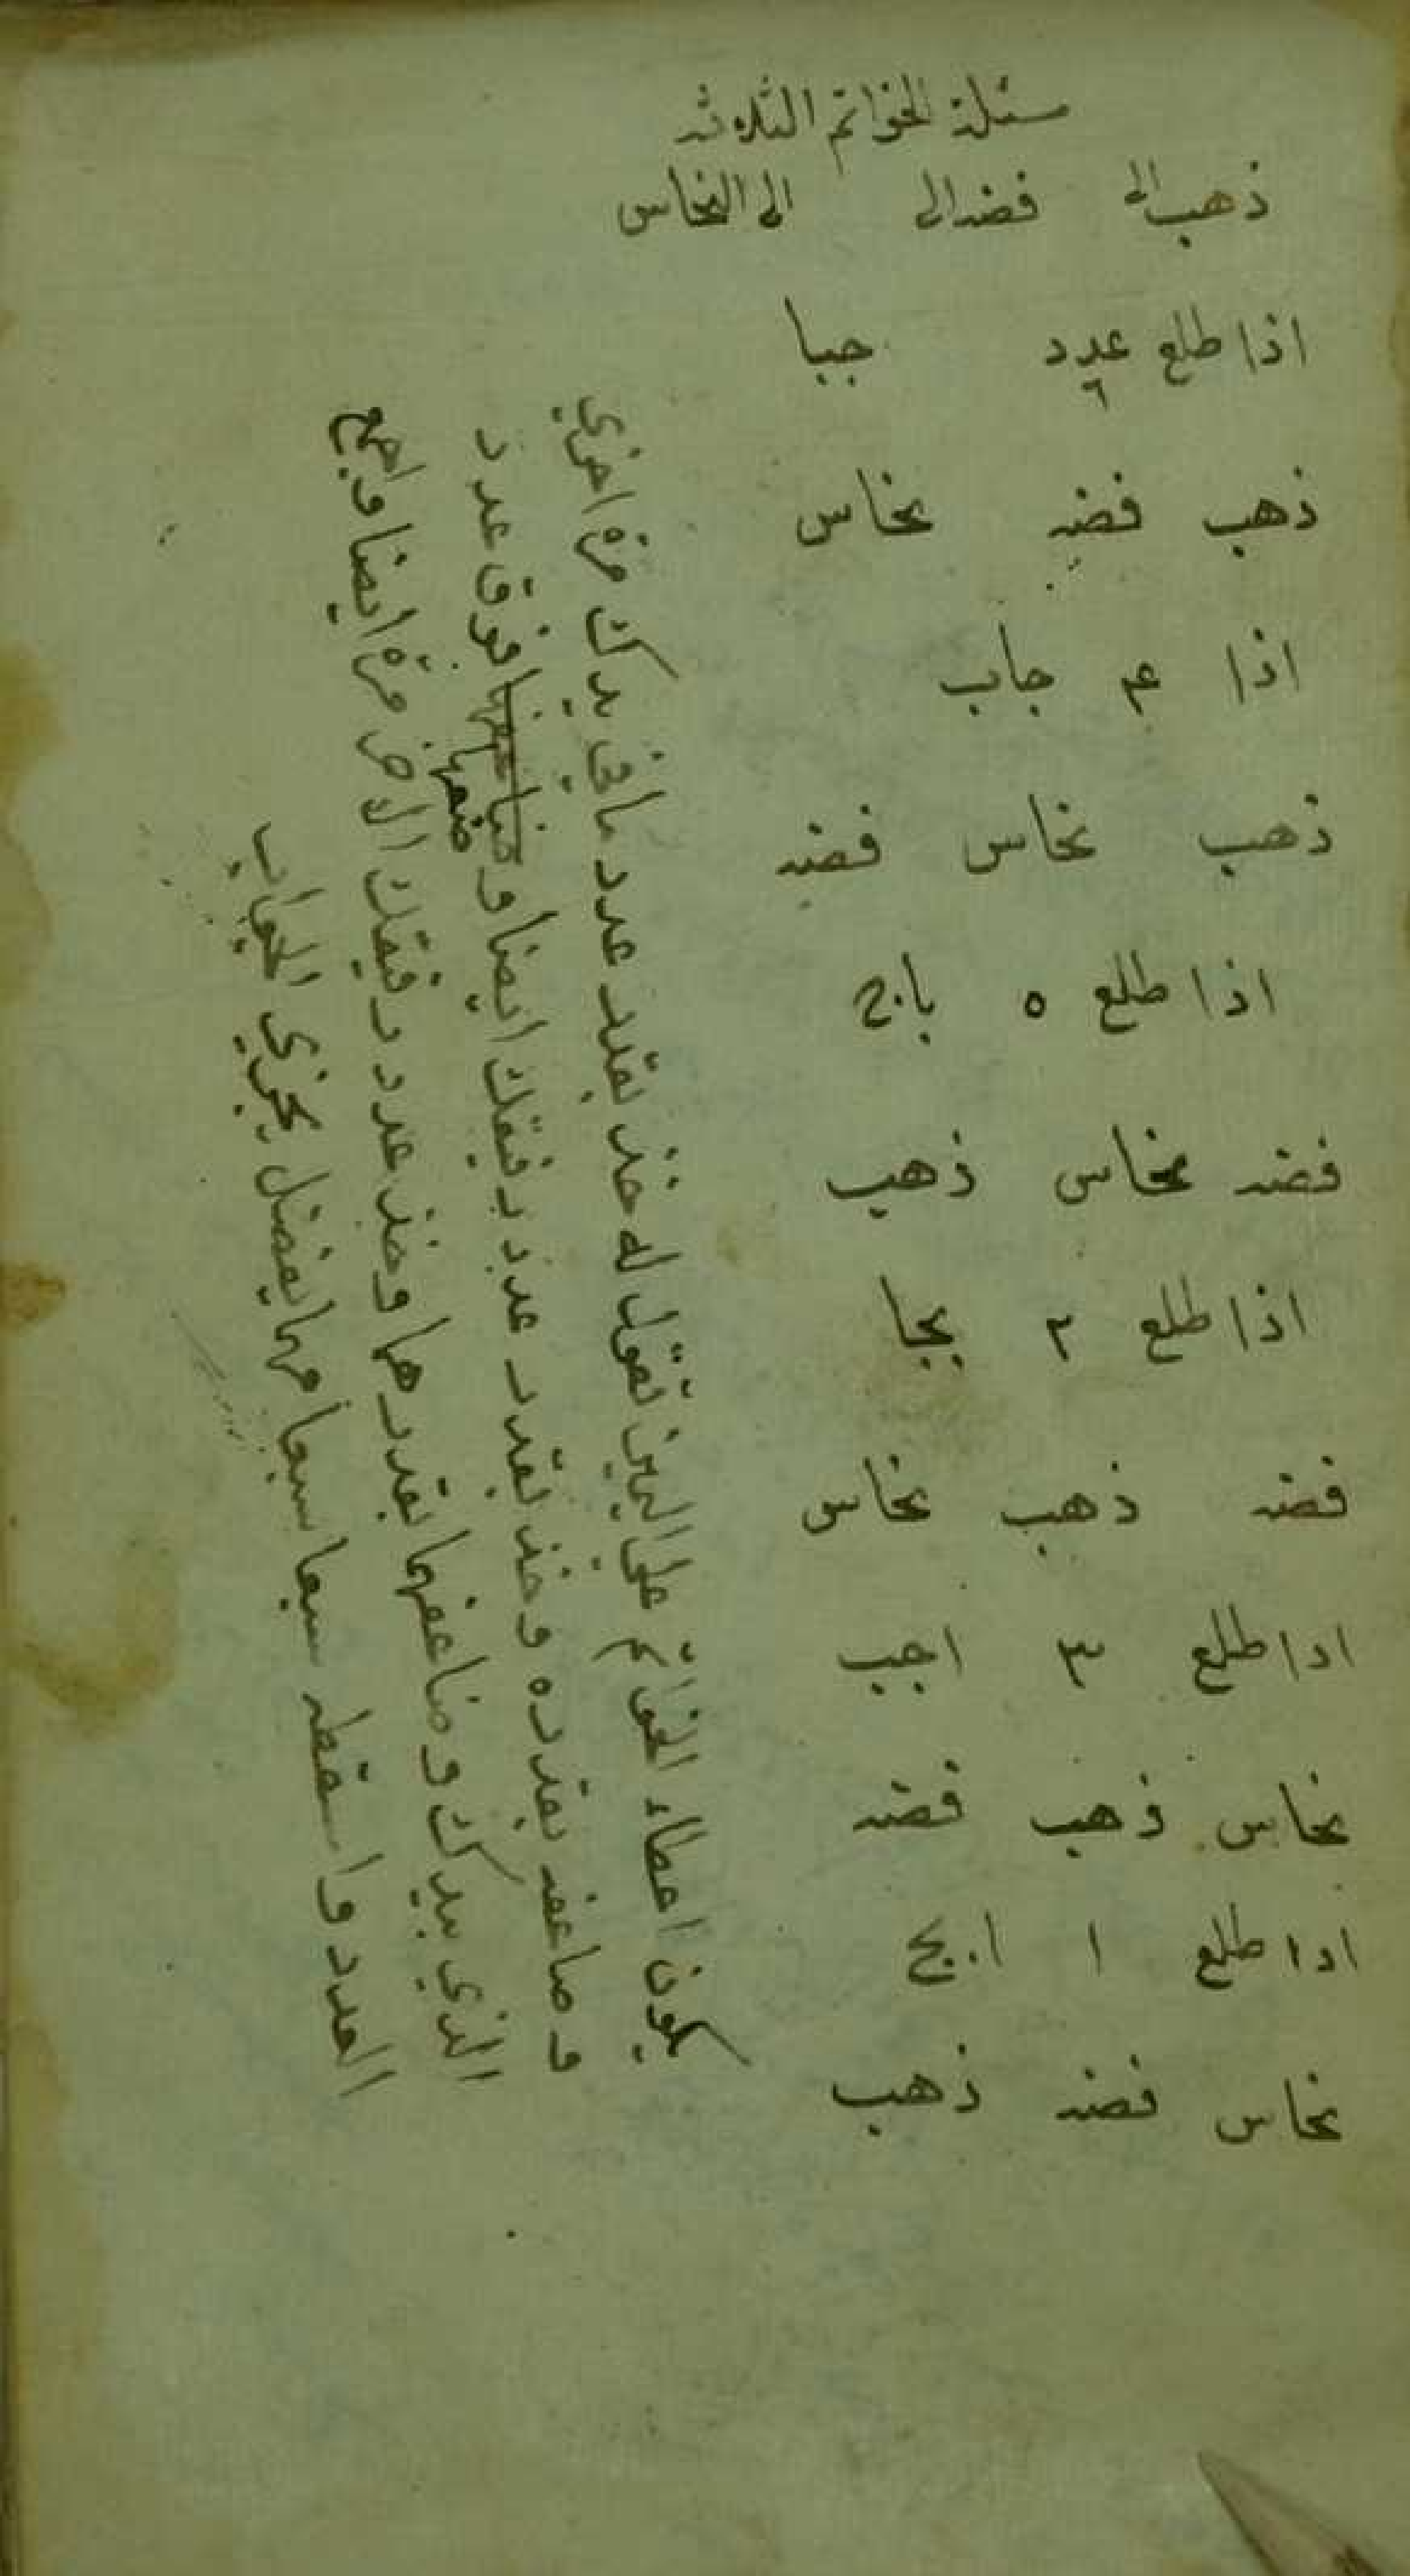 مسئلة الخواتم الثلاثه
ذهب الى فضه الى الى النحاس
اذا طلع عدد ٦ جبا
ذهب فضه نحاس
اذا ۴ جاب
ذهب نحاس فضه
اذا طلع ٥ باج
فضه نحاس ذهب
اذا طلع ٢ بجا
فضه ذهب نحاس
اذا طلع ٣ اجب
نحاس ذهب فضه
اذا طلع ١ ابج
نحاس فضه ذهب
يكون اعطاء الخواتم على اليمين تقول له خذ بقدر عدد ما في يدك مرة اخرى
وضاعفه بقدره وخذ بقدر عدد رفيقك ايضا و ضعفها فوق عدد
الذي بيدك وضاعفهما بقدرها وخذ عدد رفيقك الاخر مرة ايضا واجمع
العدد واسقطه سبعا سبعا مهما يفضل يجزي الجواب